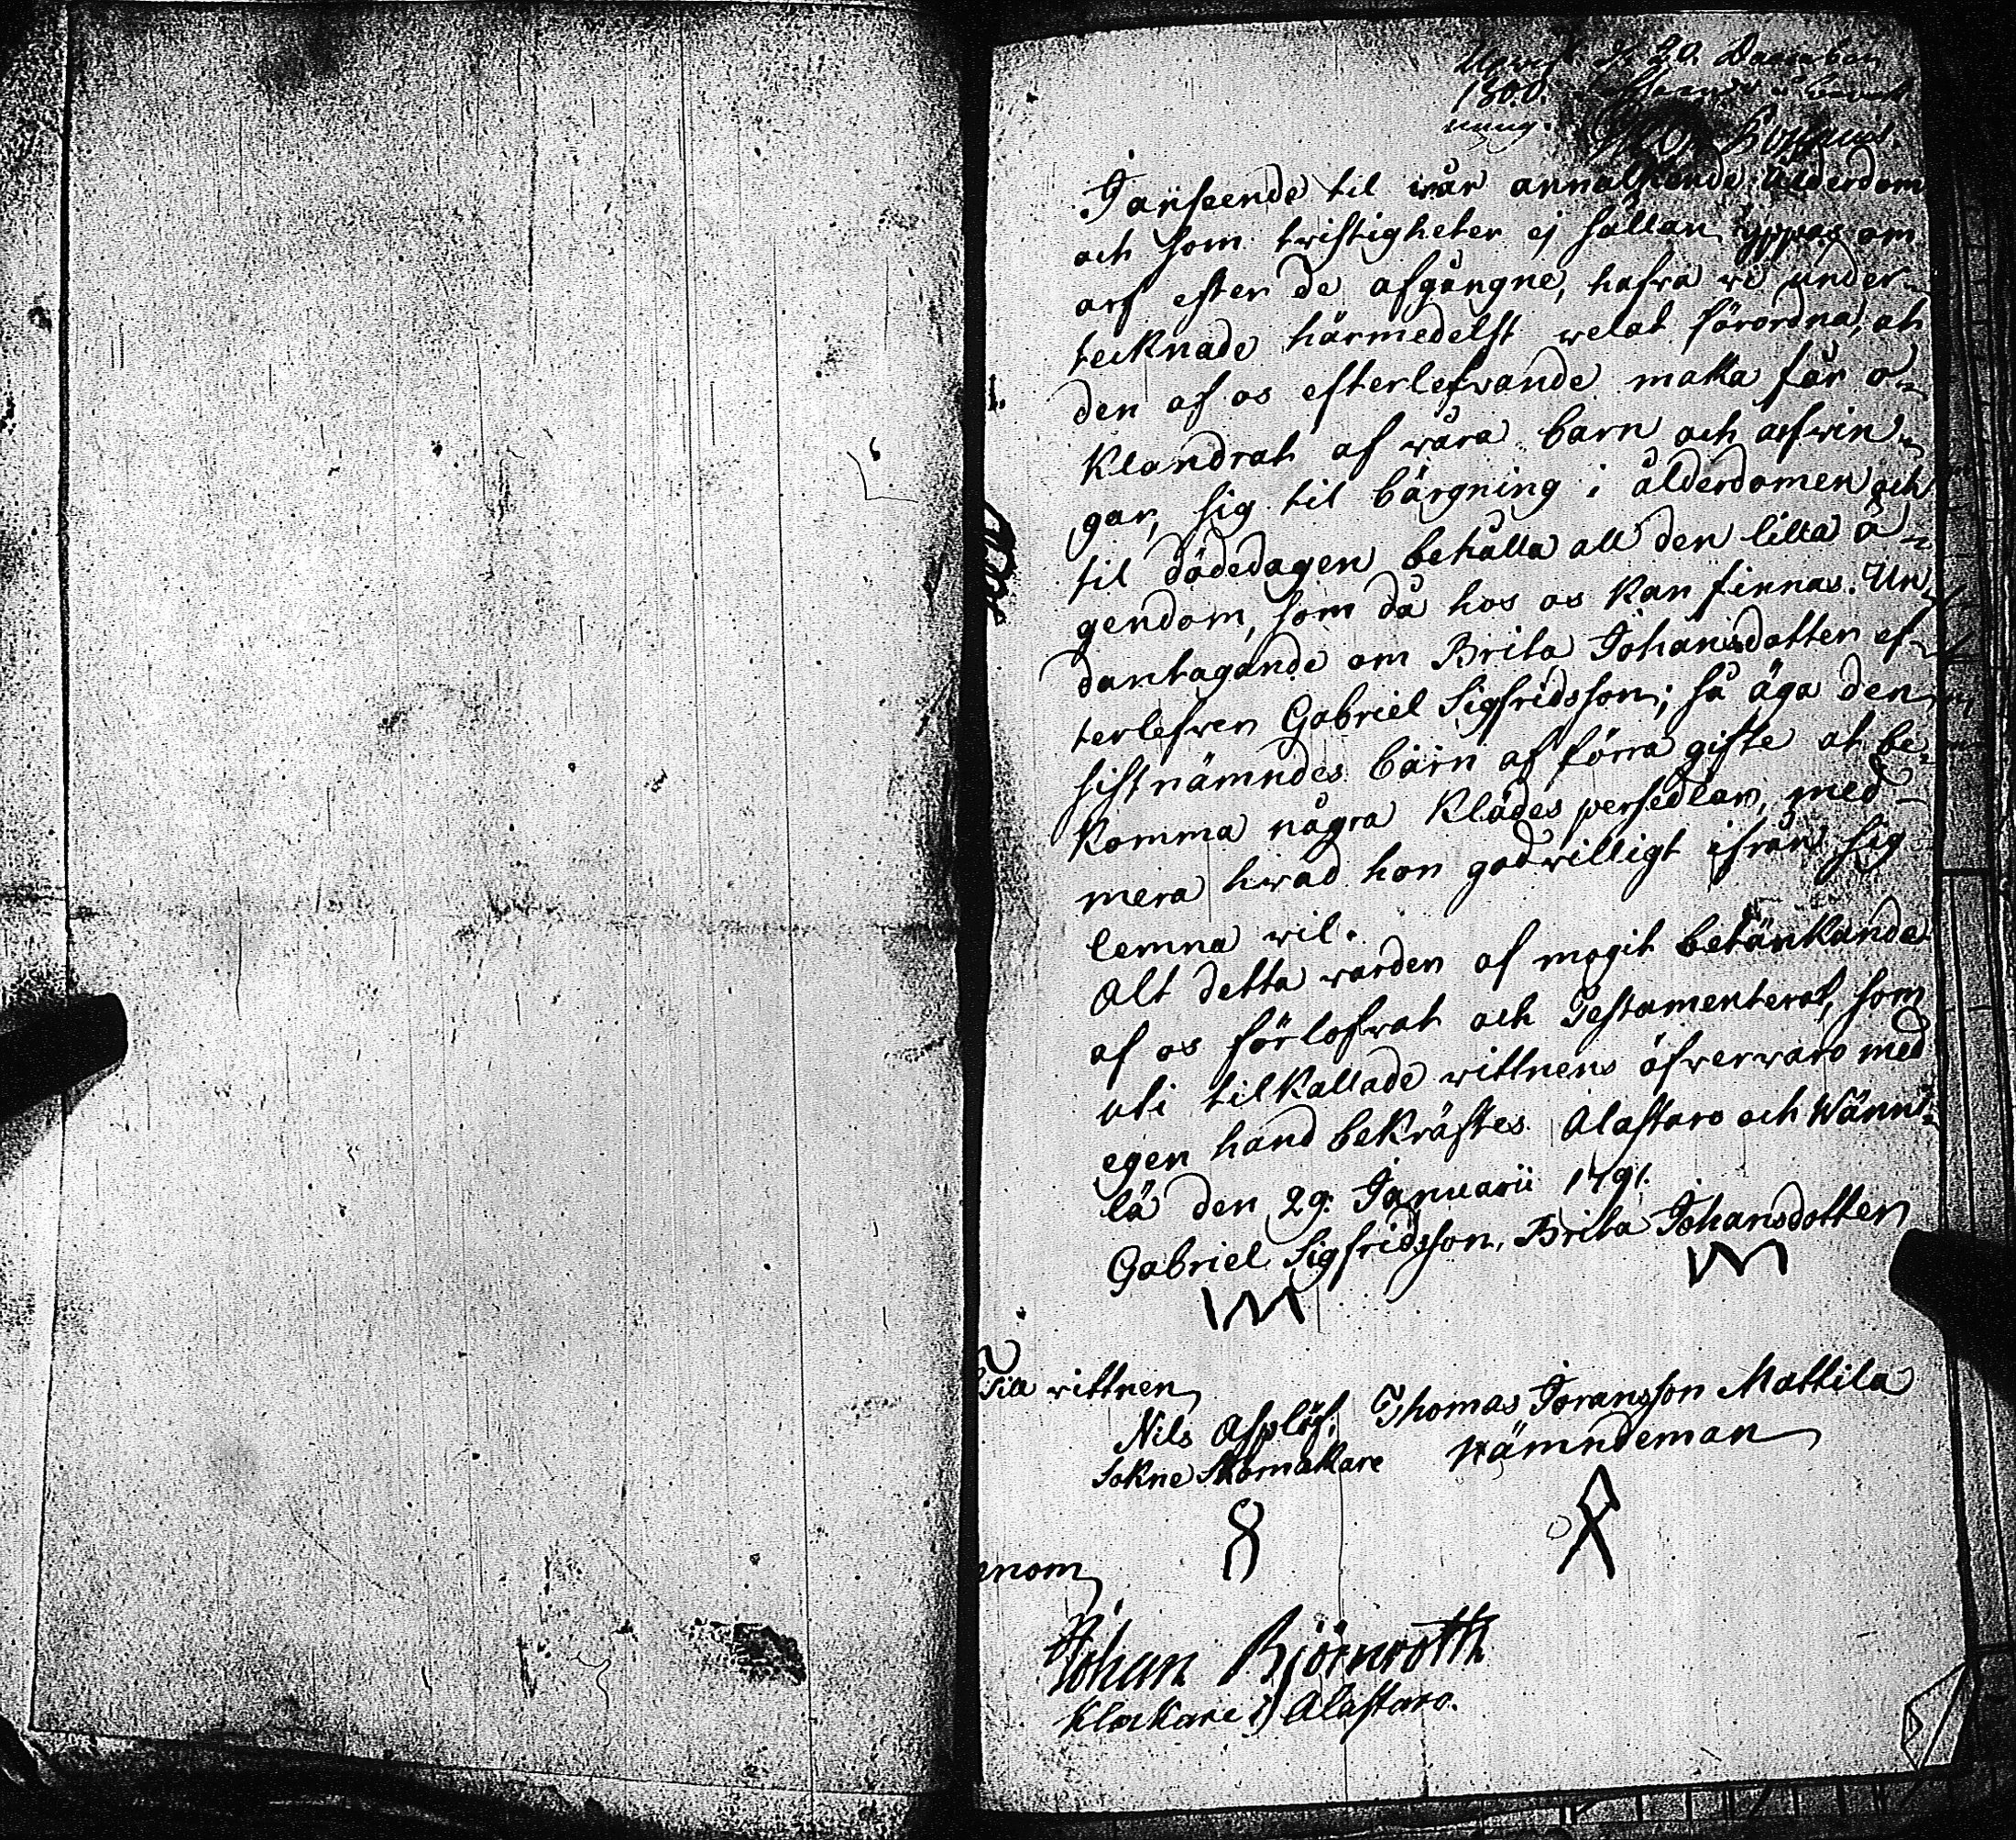 d. 20 December
1800.
I anseende til wår annalkende ålderdom
och som twistigheter ej sällan yppas om
arf efter de afgångne, hafwa wi under-
tecknade härmedelst welat förordna, at
den af os efterlefwande maka får o-
klandrat af wåra barn och arfwin-
gar, sig til bärgning i ålderdomen och
til dödedagen behålla all den lilla ä-
gendom, som då hos os kan finnas. Un-
dantagande om Brita Johansdotter ef-
terlefwer Gabriel Sigfridsson; så äga den
sistnämndes barn af förra gifte at be-
komma några klädes persedlar, med-
mera hwad hon godwilligt ifrån sig
lemna wil.
Alt detta warder af mogit betänkande
af os förlofwat och Testamenterat, som
uti tilkallade wittnens öfwerwaro med
egen hand bekräftes Alastaro och Wänni-
lä den 29. Januarii 1791.
Gabriel Sigfridsson, Brita Johansdotter
Till wittnen
Nils Asplöf, Thomas Joransson Mattila
Sokne Skomakare Nämndeman
enom
Johan Björnroth
Klockare i Alastaro.